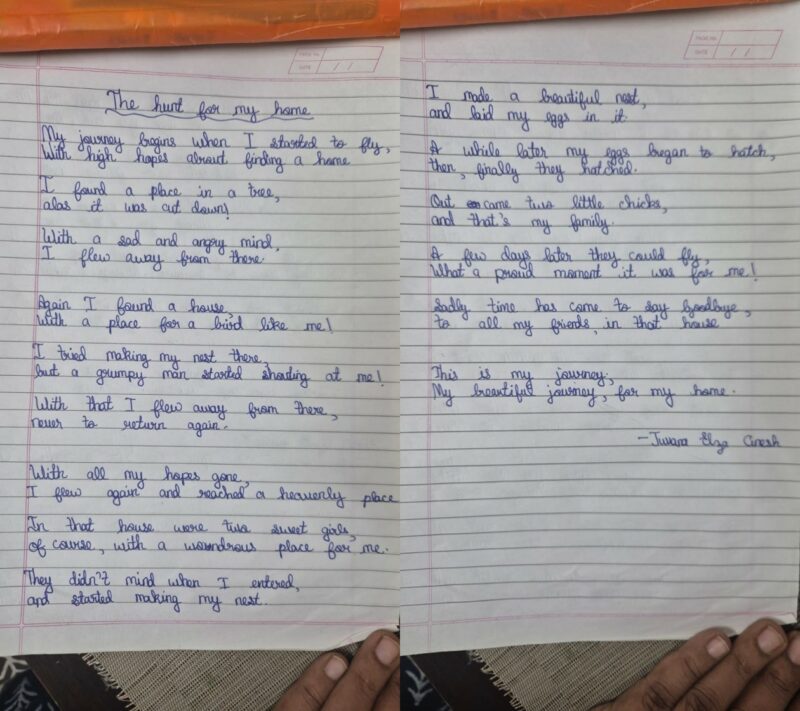 PAGE NO.
DATE / /
The hunt for my home
My journey begins when I started to fly,
With high hopes about finding a home
I found a place in a tree,
alas it was cut down!
With a sad and angry mind,
I flew away from there.
Again I found a house,
With a place for a bird like me!
I tried making my nest there,
but a grumpy man started shouting at me!
With that I flew away from there,
never to return again.
With all my hopes gone,
I flew again and reached a heavenly place
In that house were two sweet girls,
of course, with a woundrous place for me.
They didn't mind when I entered,
and started making my nest.
PAGE NO.
DATE / /
I made a beautiful nest,
and laid my eggs in it
A while later my eggs began to hatch,
then, finally they hatched.
Out came two little chicks,
and that's my family.
A few days later they could fly,
What a proud moment it was for me!
Sadly time has come to say Goodbye,
to all my friends, in that house
This is my journey,
My beautiful journey, for my home.
- Elza